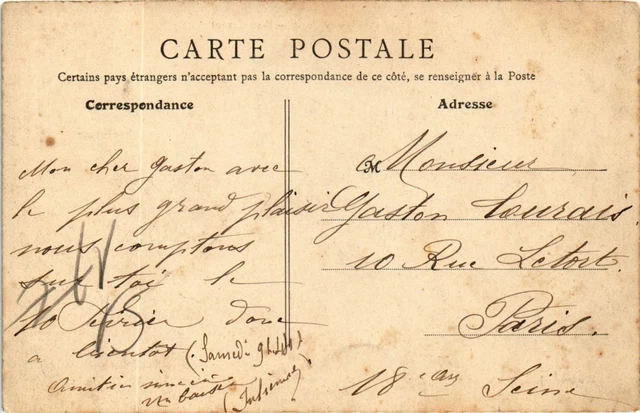 CARTE POSTALE
Certains pays étrangers n'acceptant pas la correspondance de ce côté, se renseigner à la Poste
Correspondance
Adresse
Mon cher Gaston avec
le plus grand plaisir
nous comptons
sur toi le
février donc
a bientot (Samedi
un baiser
Monsieur
Gaston
10 Rue Letort.
Paris.
18e Seine